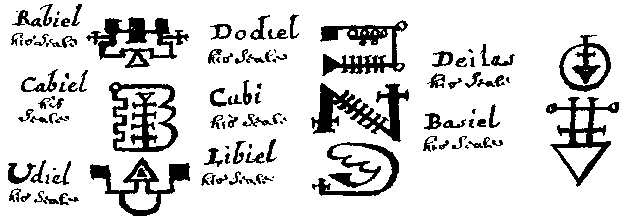 Rabiel
his Seale
Cabiel
his
Seale
Udiel
his Seale
Dodiel
his Seale
Cubi
his Seale
Libiel
his Seale
Deilas
his Seale
Basiel
his Seale